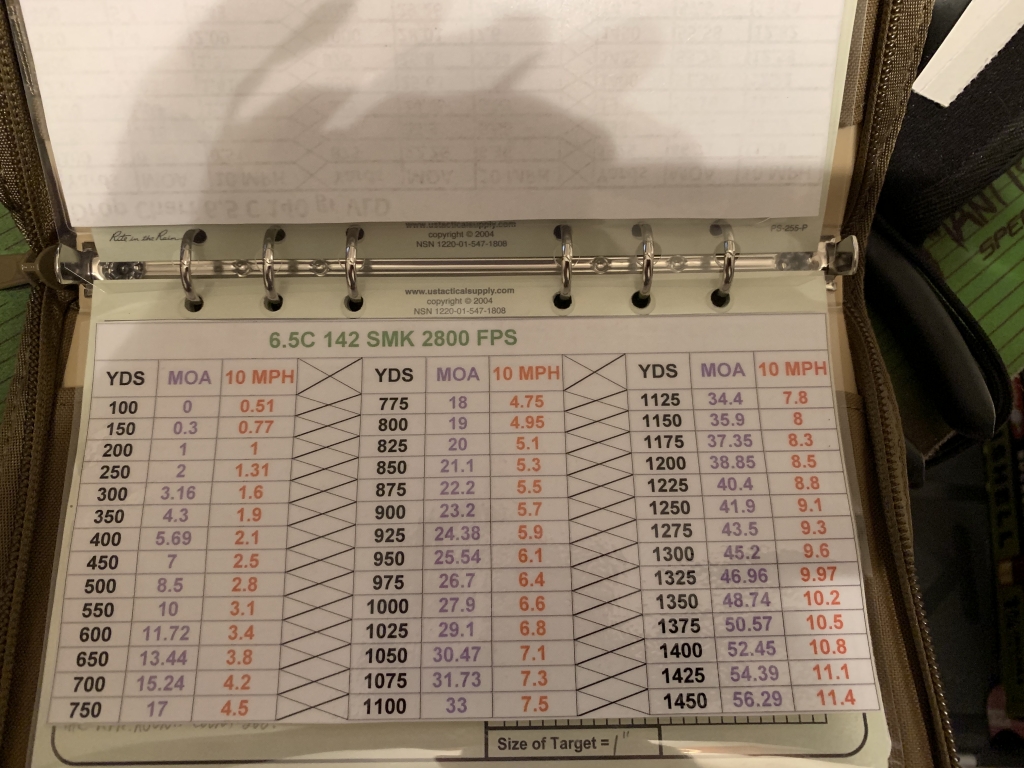 Drop Chart 6.5 C 140 gr VLD
Rite in the Rain
www.ustacticalsupply.com
copyright © 2004
NSN 1220-01-547-1808
PS-255-P
www.ustacticalsupply.com
copyright © 2004
NSN 1220-01-547-1808
6.5C 142 SMK 2800 FPS
YDS MOA 10 MPH YDS MOA 10 MPH YDS MOA 10 MPH
100 0 0.51 775 18 4.75 1125 34.4 7.8
150 0.3 0.77 800 19 4.95 1150 35.9 8
200 1 1 825 20 5.1 1175 37.35 8.3
250 2 1.31 850 21.1 5.3 1200 38.85 8.5
300 3.16 1.6 875 22.2 5.5 1225 40.4 8.8
350 4.3 1.9 900 23.2 5.7 1250 41.9 9.1
400 5.69 2.1 925 24.38 5.9 1275 43.5 9.3
450 7 2.5 950 25.54 6.1 1300 45.2 9.6
500 8.5 2.8 975 26.7 6.4 1325 46.96 9.97
550 10 3.1 1000 27.9 6.6 1350 48.74 10.2
600 11.72 3.4 1025 29.1 6.8 1375 50.57 10.5
650 13.44 3.8 1050 30.47 7.1 1400 52.45 10.8
700 15.24 4.2 1075 31.73 7.3 1425 54.39 11.1
750 17 4.5 1100 33 7.5 1450 56.29 11.4
Size of Target = 1"